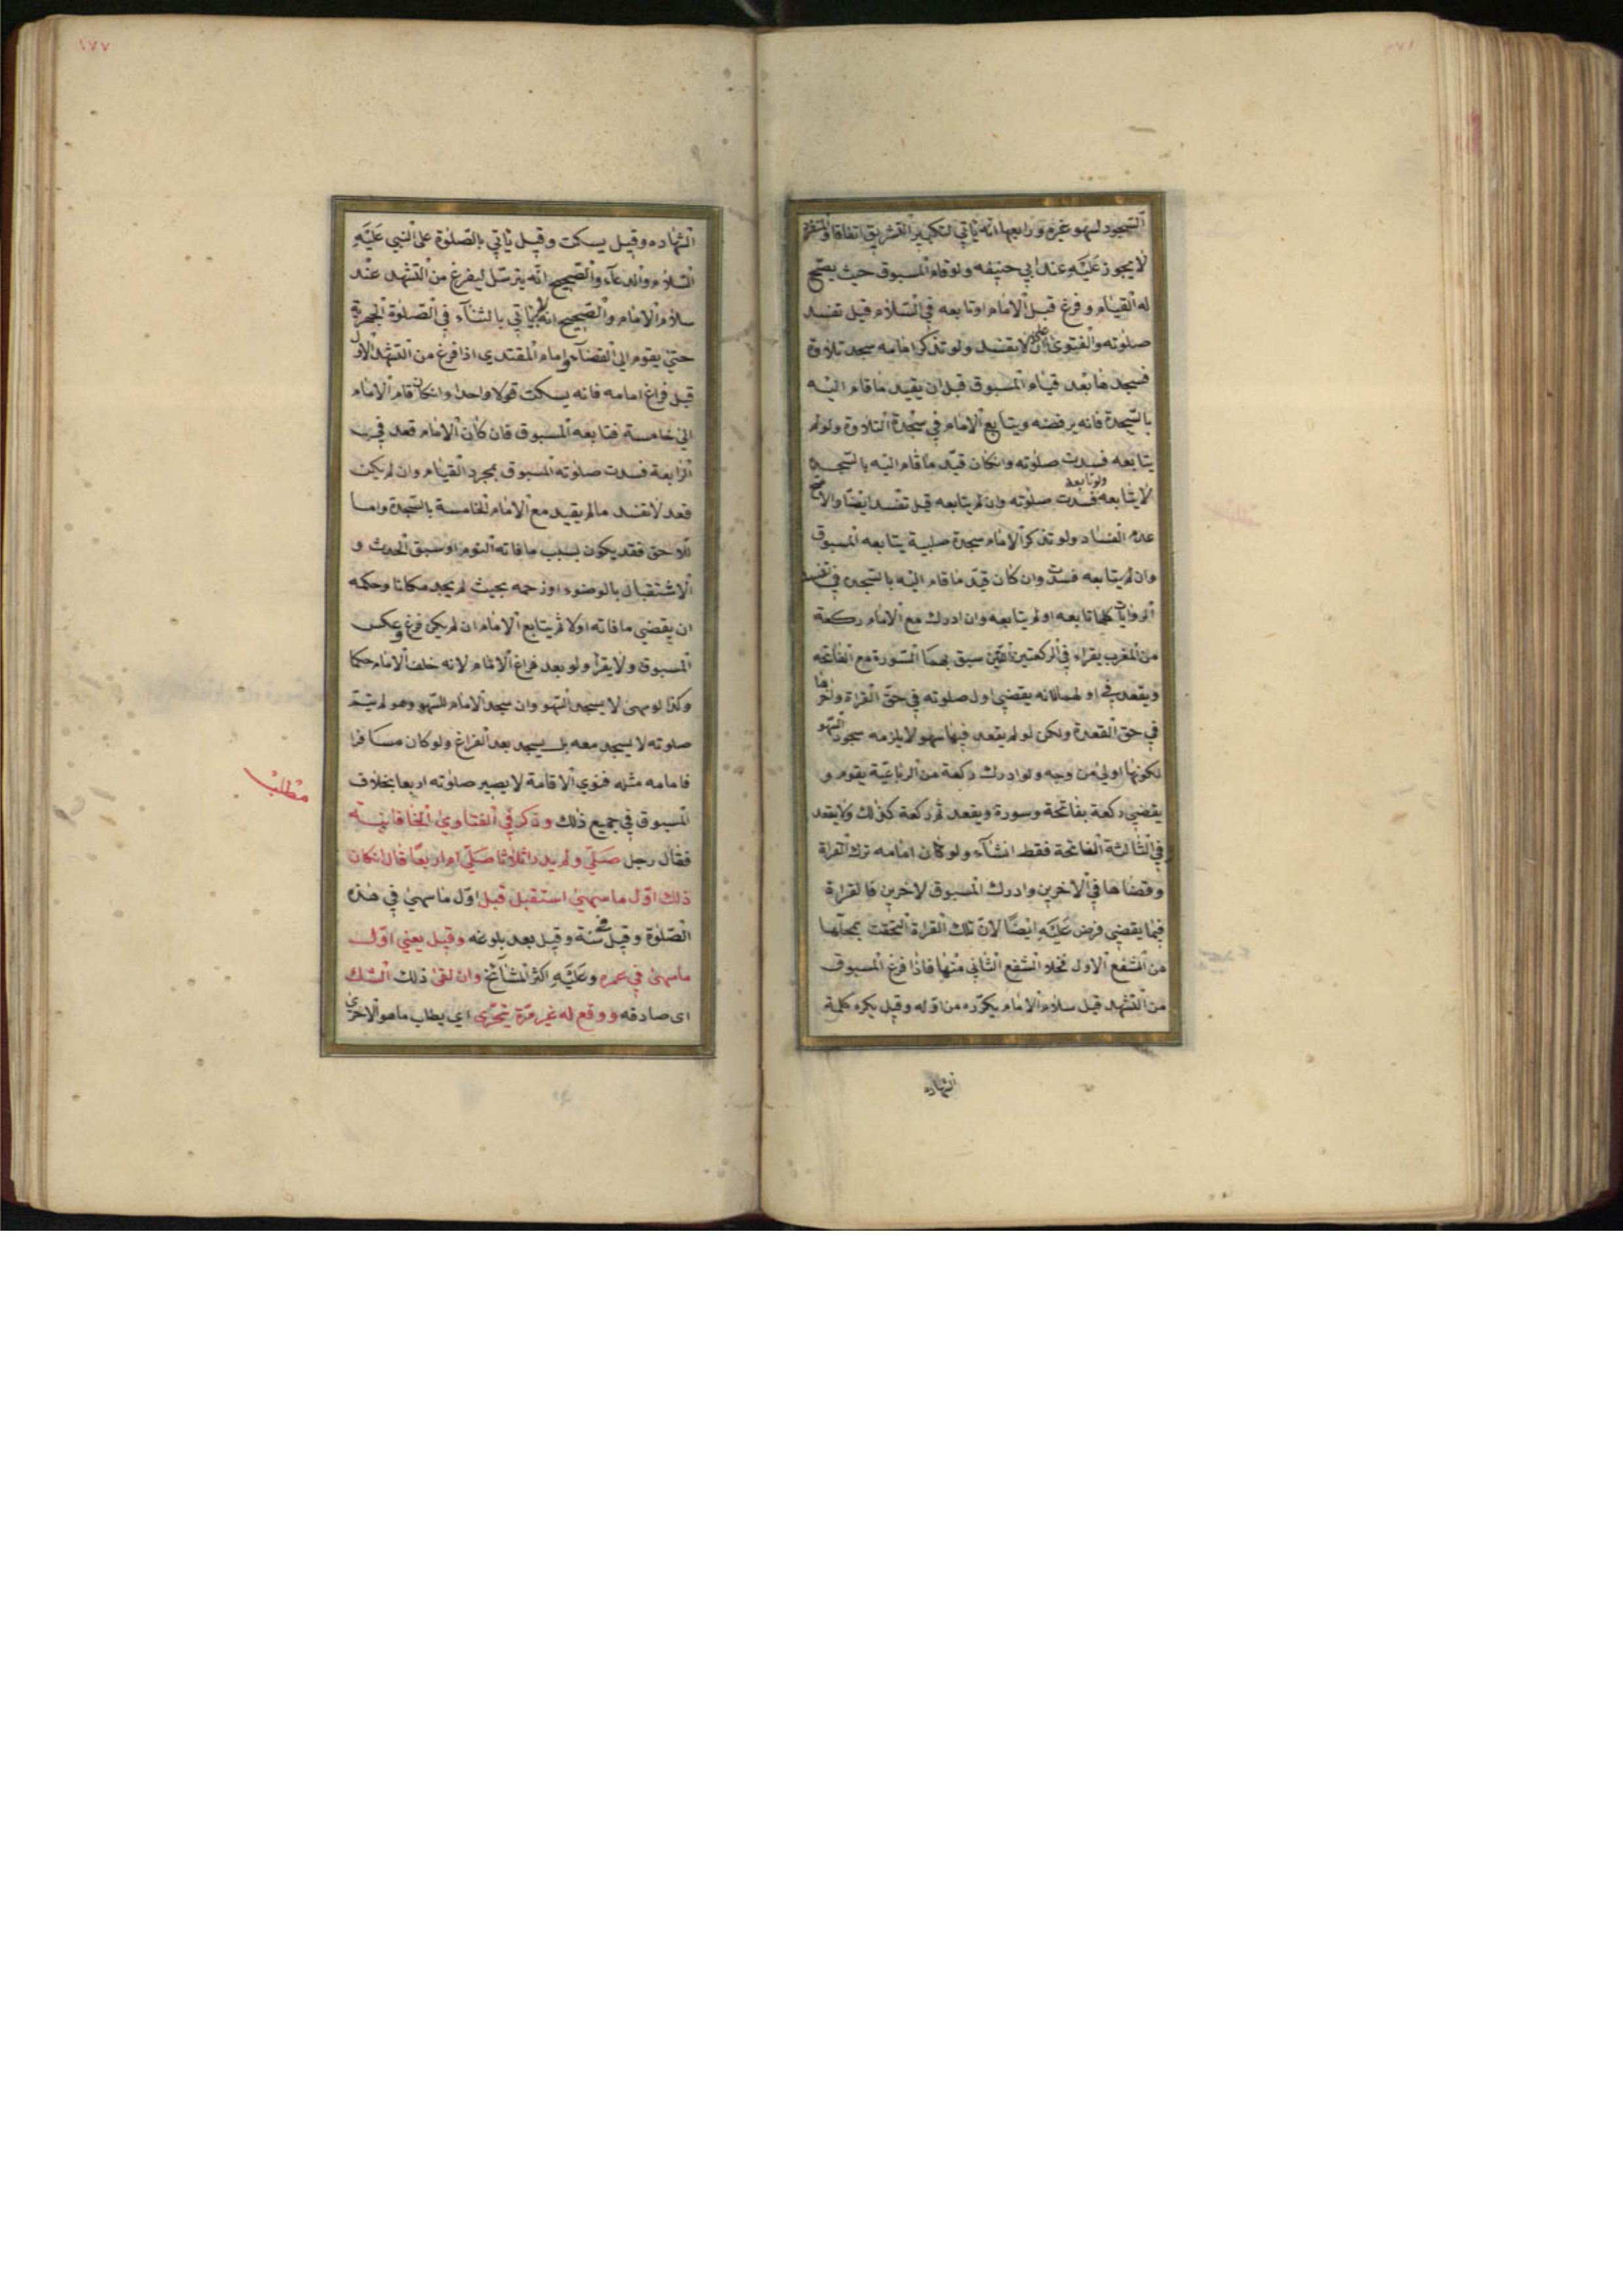 ١٧٦
السجود لسهو غيره ورابعها انه يأتي لتكبير التشريق اتفاقا والمنفرد
لا يجوز عليه عند ابي حنيفه ولو قام المسبوق حيث يصح
له القيام وفرغ قبل الامام وتابعه في السلام قيل تفسد
صلوته والفتوى على ان لا تفسد ولو تذكر امامه سجد تلاوة
فسجدها بعد قيام المسبوق قبل ان يقيد ما قام اليه
بالسجدة فانه يرفضه ويتابع الامام في سجدة التلاوة ولو لم
يتابعه فسدت صلوته وانكان قيد ما قام اليه بالسجدة
لا يتابعه ولو تابعه فسدت صلوته وان لم يتابعه قيل تفسد ايضا والاصح
عدم الفساد ولو تذكر الامام سجدة صلبية يتابعه المسبوق
وان لم يتابعه فسدت وان كان قيد ما قام اليه بالسجده تفسد في
الروايات كلها تابعه او لم يتابعه وان ادرك مع الامام ركعة
من المغرب يقراء في الركعتين اللتين سبق بهما السورة مع الفاتحه
ويقعد في اولهما لانه يقضي اول صلوته في حق القراة واخرها
في حق القعدة ولكن لو لم يقعد فيها سهو لا يلزمه سجود السهو
لكونها اولى من وجه ولو ادرك ركعة من الرباعية يقوم و
يقضي ركعة بفاتحة وسورة ويقعد ثم ركعة كذلك ولا يقعد
في الثالثة الفاتحة فقط انشآء ولو كان امامه ترك القراة
وقضاها في الاخرين وادرك المسبوق لاخرين فالقراءة
فيما يقضي فرض عليه ايضا لان تلك القراة التحقت بمحلها
من الشفع الاول فخلا الشفع الثاني منها فاذا فرغ المسبوق
من التشهد قبل سلام الامام يكرره من اوله وقيل يكره كلمة
الشهاده
١٧٧
الشهاده وقيل يسكت وقيل يأتي بالصلوة على النبي عليه
السلام والدعآء والصحيح انه يترسل ليفرغ من التشهد عند
سلام الامام والصحيح انه لا يأتي بالثنآء في الصلوة الجهرية
حتى يقوم الى القضآء وامام المقتدي اذا فرغ من التشهد الاول
قبل فراغ امامه فانه يسكت قولا واحدا وانكان قام الامام
الى خامسة فتابعه المسبوق فان كان الامام قعد في
الرابعة فسدت صلوته المسبوق بمجرد القيام وان لم يكن
قعد لا تفسد مالم يقيد مع الامام الخامسة بالسجدة واما
اللاحق فقد يكون بسبب ما فاته النوم او سبق الحدث و
الاشتغال بالوضوء او زحمه بحيث لم يجد مكانا وحكمه
ان يقضي ما فاته اولا ثم يتابع الامام ان لم يكن فرغ وعكس
المسبوق ولا يقرأ ولو بعد فراغ الامام لانه خلف الامام حكما
وكذا لو سهى لا يسجد السهو وان سجد الامام للسهو وهو لم يتم
صلوته لا يسجد معه بل يسجد بعد الفراغ ولو كان مسافرا
فامامه مثله فنوى الاقامة لا يصير صلوته اربعا بخلاف
مطلب
المسبوق في جميع ذلك وذكر في الفتاوى الخاقانيه
فقال رجل صلى ولم يدر اثلاثا صلى ام اربعا قال انكان
ذلك اول ما سهى استقبل قيل اول ما سهى في هذه
الصلوة وقيل في سنة وقيل بعد بلوغه وقيل يعني اول
ما سهى في عمره وعليه اكثر المشآئخ وان لقى ذلك الشك
اى صادفه ووقع له غير مرة يتحرى اي يطلب ما هو الاحرى